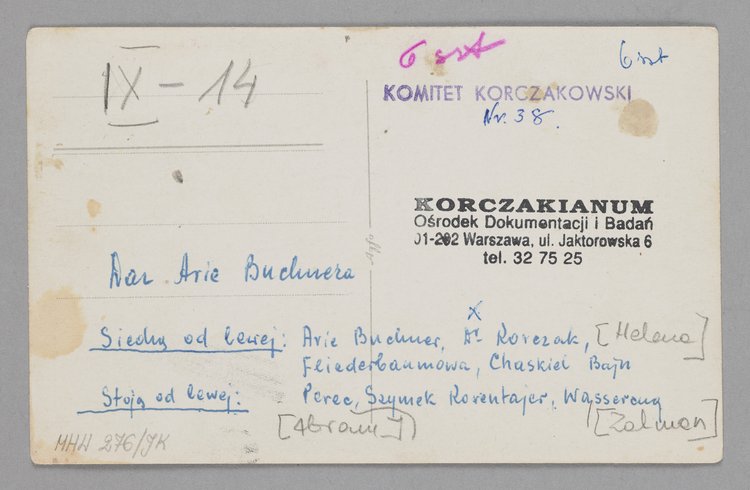 IX - 14
6 szt
6 szt
KOMITET KORCZAKOWSKI
Nr. 38.
KORCZAKIANUM
Ośrodek Dokumentacji i Badań
01-202 Warszawa, ul. Jaktorowska 6
tel. 32 75 25
Dar Arie Buchnera
x
Siedzą od lewej: Arie Buchner, Dr Korczak, [Helena]
Fliederbaumowa, Chaskiel Bajn
Stoją od lewej: Perec, Szymek Korentajer, Wasserzug
[Abram] [Zalman]
MHW 276/JK